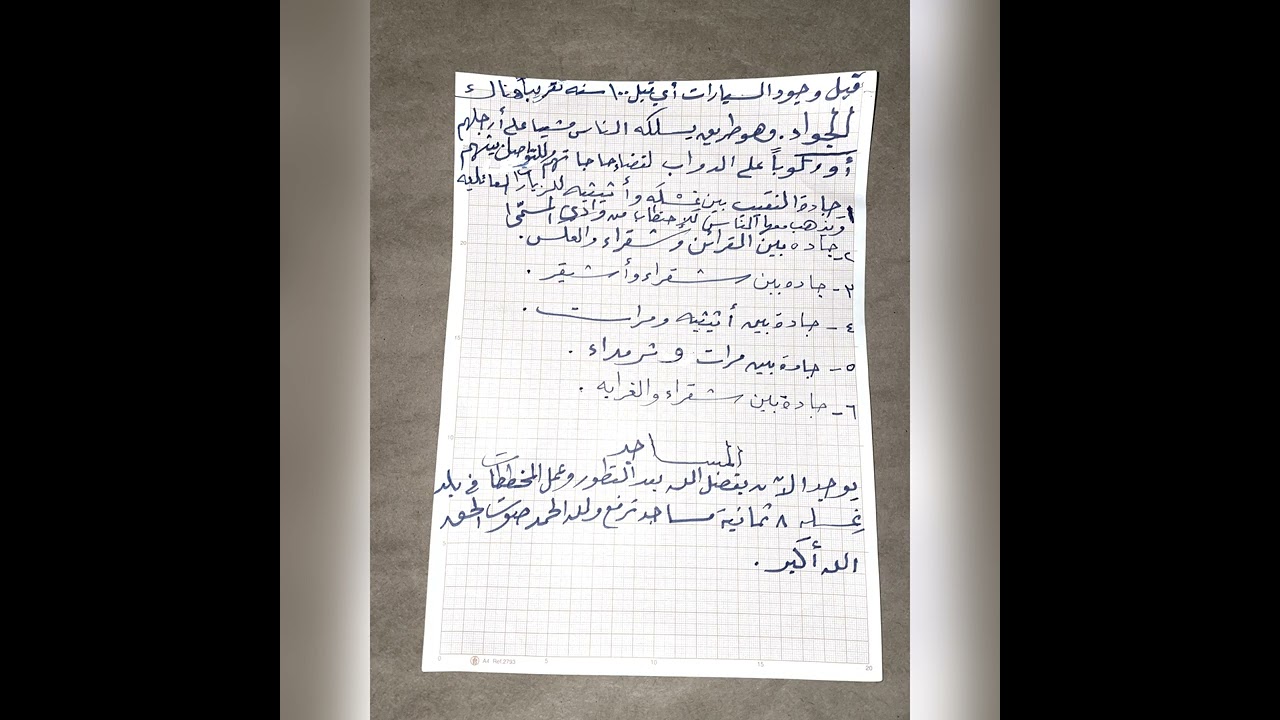 قبل وجود السيارات أي قبل ١٠٠ سنه تقريباً هناك
الجواد. وهو طريق يسلكه الناس مشيا على أرجلهم
أو ركوباً على الدواب لقضاء حاجاتهم للتواصل بينهم
١- جادة النقيب بين غسله وأثيثيه للزيارات العائليه
ويذهب معها الناس للإحتطاب من وادي المسمّى
٢- جاده بين القرائن وشقراء والعلس.
٣- جاده بين شقراء وأشيقر.
٤- جادة بين أثيثيه ومرات.
٥- جادة بين مرات وثرمداء.
٦- جادة بين شقراء والغرابه.
المساجد
يوجد الآن بفضل الله بعد التطور وعمل المخططات في بلد
غسله ٨ ثمانية مساجد ترفع ولله الحمد صوت الحق
الله أكبر.
20
15
10
5
0 A4 Ref.2793 5 10 15 20